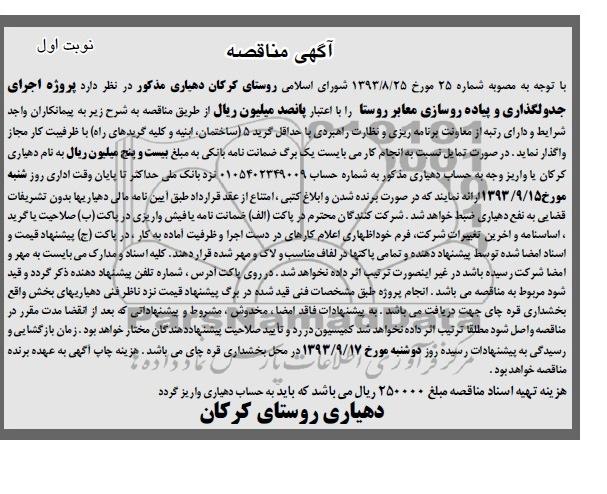 آگهی مناقصه
نوبت اول
با توجه به مصوبه شماره ۲۵ مورخ ۱۳۹۳/۸/۲۵ شورای اسلامی روستای کرکان دهیاری مذکور در نظر دارد پروژه اجرای
جدولگذاری و پیاده روسازی معابر روستا را با اعتبار پانصد میلیون ریال از طریق مناقصه به شرح زیر به پیمانکاران واجد
شرایط و دارای رتبه از معاونت برنامه ریزی و نظارت راهبردی با حداقل گرید ۵ (ساختمان، ابنیه و کلیه گریدهای راه) با ظرفیت کار مجاز
واگذار نماید . در صورت تمایل نسبت به انجام کار می بایست یک برگ ضمانت نامه بانکی به مبلغ بیست و پنج میلیون ریال به نام دهیاری
کرکان یا واریز وجه به حساب دهیاری مذکور به شماره حساب ۰۱۰۵۴۰۲۳۴۹۰۰۹ نزد بانک ملی حداکثر تا پایان وقت اداری روز شنبه
مورخ ۱۳۹۳/۹/۱۵ ارائه نمایند که در صورت برنده شدن و ابلاغ کتبی ، امتناع از عقد قرارداد طبق آیین نامه مالی دهیاریها بدون تشریفات
قضایی به نفع دهیاری ضبط خواهد شد . شرکت کنندگان محترم در پاکت (الف) ضمانت نامه یا فیش واریزی در پاکت (ب) صلاحیت یا گرید
، اساسنامه و آخرین تغییرات شرکت، فرم خوداظهاری اعلام کارهای در دست اجرا و ظرفیت آماده به کار ، در پاکت (ج) پیشنهاد قیمت و
اسناد امضا شده توسط پیشنهاد دهنده و تمامی پاکتها در لفاف مناسب و لاک و مهر شده قرار دهند. کلیه اسناد و مدارک می بایست به مهر و
امضا شرکت رسیده باشد در غیر اینصورت ترتیب اثر داده نخواهد شد . در روی پاکت آدرس ، شماره تلفن پیشنهاد دهنده ذکر گردد و قید
شود مربوط به مناقصه می باشد . انجام پروژه طبق مشخصات فنی قید شده در برگ پیشنهاد قیمت نزد ناظر فنی دهیاریهای بخش واقع
بخشداری قره چای جهت دریافت می باشد . به پیشنهادات فاقد امضا ، مخدوش ، مشروط و پیشنهاداتی که بعد از انقضا مدت مقرر در
مناقصه واصل شود مطلقا ترتیب اثر داده نخواهد شد کمیسیون در رد و تایید صلاحیت پیشنهاددهندگان مختار خواهد بود . زمان بازگشایی و
رسیدگی به پیشنهادات رسیده روز دوشنبه مورخ ۱۳۹۳/۹/۱۷ در محل بخشداری قره چای می باشد . هزینه چاپ آگهی به عهده برنده
مناقصه خواهد بود .
هزینه تهیه اسناد مناقصه مبلغ ۲۵۰۰۰۰ ریال می باشد که باید به حساب دهیاری واریز گردد
دهیاری روستای کرکان